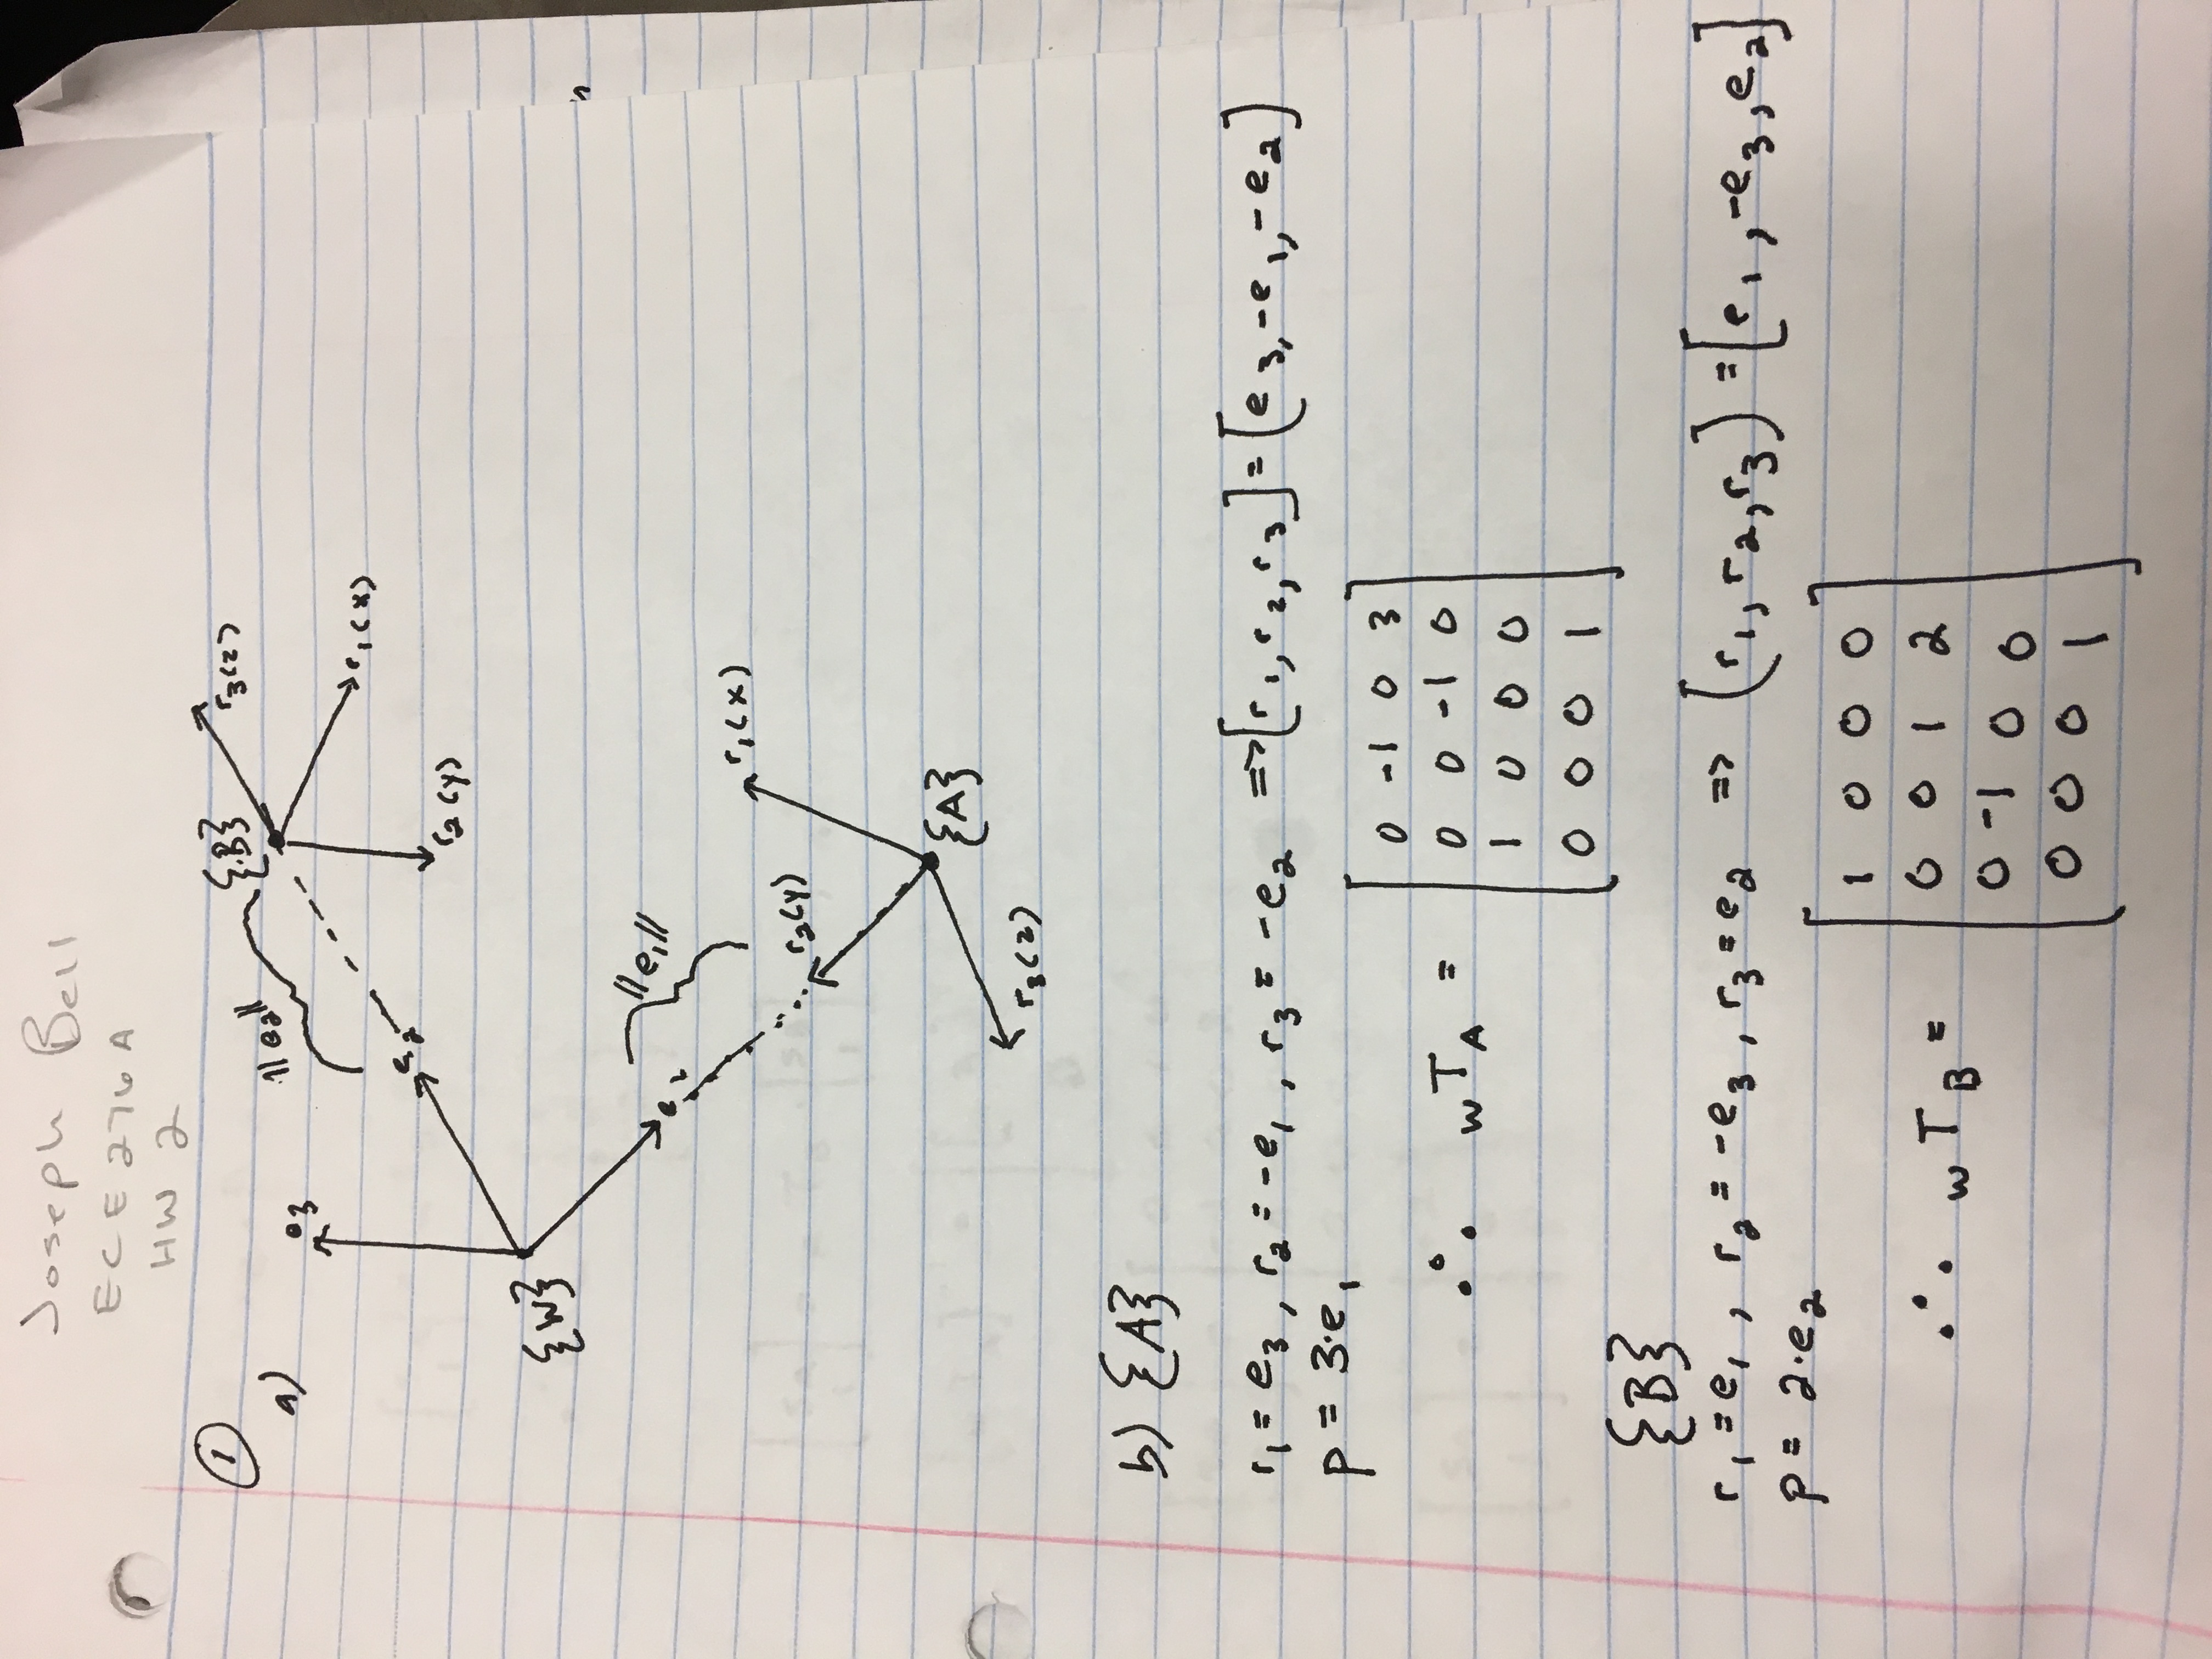 Joseph Bell
ECE 276A
HW 2
①
a)
e3
||e2||
{B}
r3(z)
r1(x)
r2(y)
e2
{W}
e1
||e1||
r1(x)
r2(y)
{A}
r3(z)
b) {A}
r1 = e3, r2 = -e1, r3 = -e2 => [r1, r2, r3] = [e3, -e1, -e2]
p = 3·e1
∴ wTA = [
0 -1 0 3
0 0 -1 0
1 0 0 0
0 0 0 1
]
{B}
r1 = e1, r2 = -e3, r3 = e2 => (r1, r2, r3) = [e1, -e3, e2]
p = 2·e2
∴ wTB = [
1 0 0 0
0 0 1 2
0 -1 0 0
0 0 0 1
]